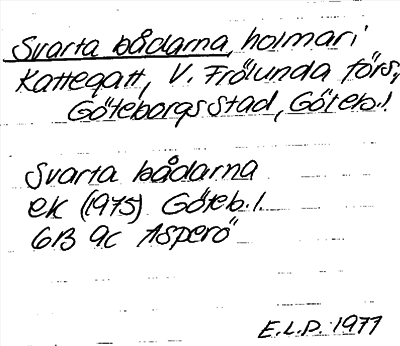 Svarta bådarna, holmar i
Kattegatt, V. Frölunda förs.,
Göteborgs stad, Göteb.l.
Svarta bådarna
ek (1975) Göteb.l.
6B 9c Asperö
E.L.D. 1977